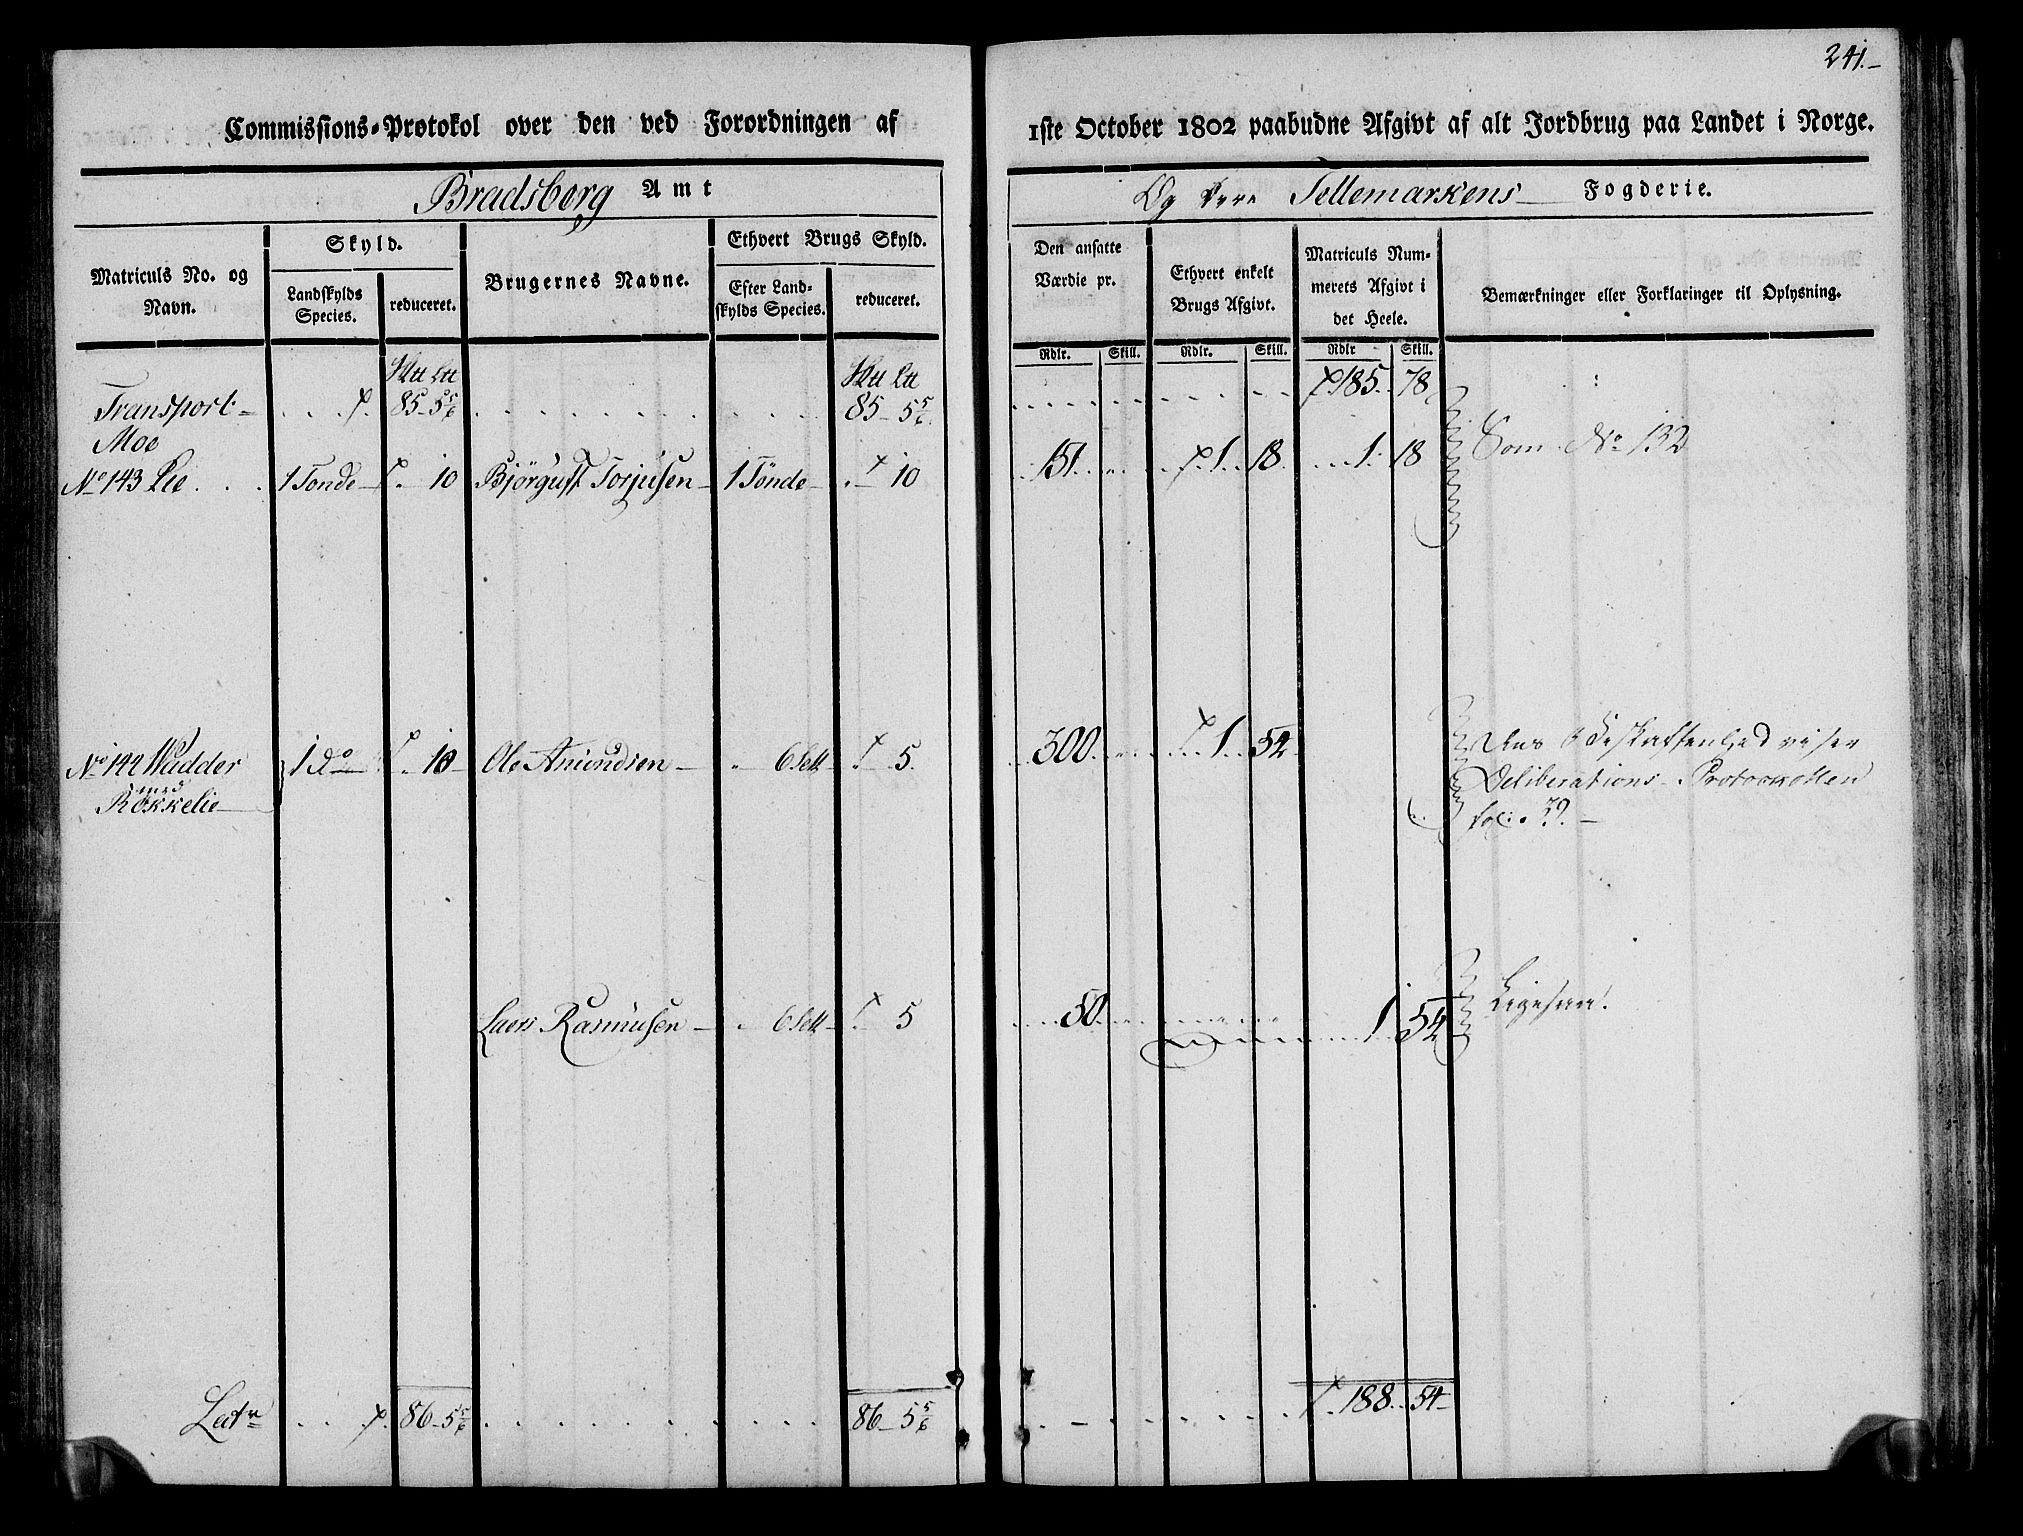 241.
Commissions-Protokol over den ved Forordningen af
1ste October 1802 paabudne Afgivt af alt Jordbrug paa Landet i Norge.
Bradsberg Amt
Og Tellemarkens Fogderie.
Matriculs No. og Navn.
Skyld.
Landskylds Species.
reduceret.
Brugernes Navne.
Ethvert Brugs Skyld.
Efter Landskylds Species.
reduceret.
Den ansatte Værdie pr.
Ethvert enkelt Brugs Afgivt.
Matriculs Nummerets Afgivt i det Heele.
Bemærkninger eller Forklaringer til Oplysning.
Rdlr. Skill. Rdlr. Skill. Rdlr Skill.
Transport 85 - 5 5/6 85 - 5 5/6 185. 78
Moe
No 143 Lie 1 Tønde 10 Bjørguft Torjusen 1 Tønde 10 151 1 18 1 18 Som No 132
No 144 Wadder 1 do 10 Ole Amundsen 6 Sett 5 300 1 54 Beskaffenhed viser
med
Røkkelie Deliberations Protocollen
fol: 39.
Laers Rasmusen 6 Sett 5 50 1 54 Ligesaa!
Latr 86 - 5 5/6 86 - 5 5/6 188 54